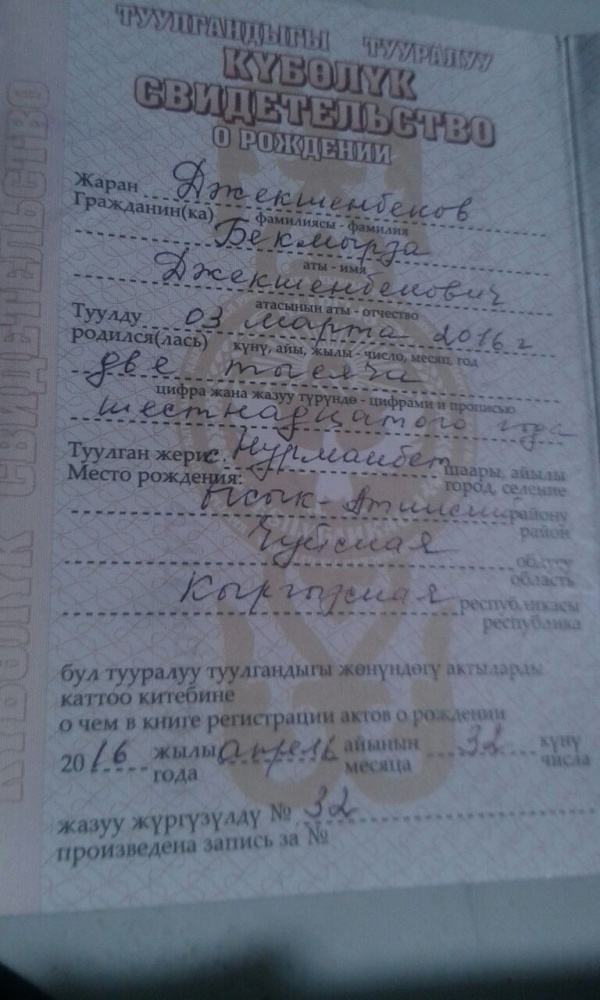 ТУУЛГАНДЫГЫ ТУУРАЛУУ
КҮБӨЛҮК
СВИДЕТЕЛЬСТВО
О РОЖДЕНИИ
Жаран Джекшенбеков
Гражданин(ка) фамилиясы - фамилия
Бекмырза
аты - имя
Джекшенбекович
атасынын аты - отчество
Туулду 03 марта 2016 г
родился(лась) күнү, айы, жылы - число, месяц, год
две тысяча
цифра жана жазуу түрүндө - цифрами и прописью
шестнадцатого года
Туулган жери: с. Нурманбет шаары, айылы
Место рождения: город, селение
Ысык- району
район
Чуйская облусу
область
Кыргызская республикасы
республика
бул тууралуу туулгандыгы жөнүндөгү актыларды
каттоо китебине
о чем в книге регистрации актов о рождении
2016 жылы апрель айынын күнү
года месяца числа
жазуу жүргүзүлдү № 32
произведена запись за №
КҮБӨЛҮК СВИДЕТЕЛЬСТВО